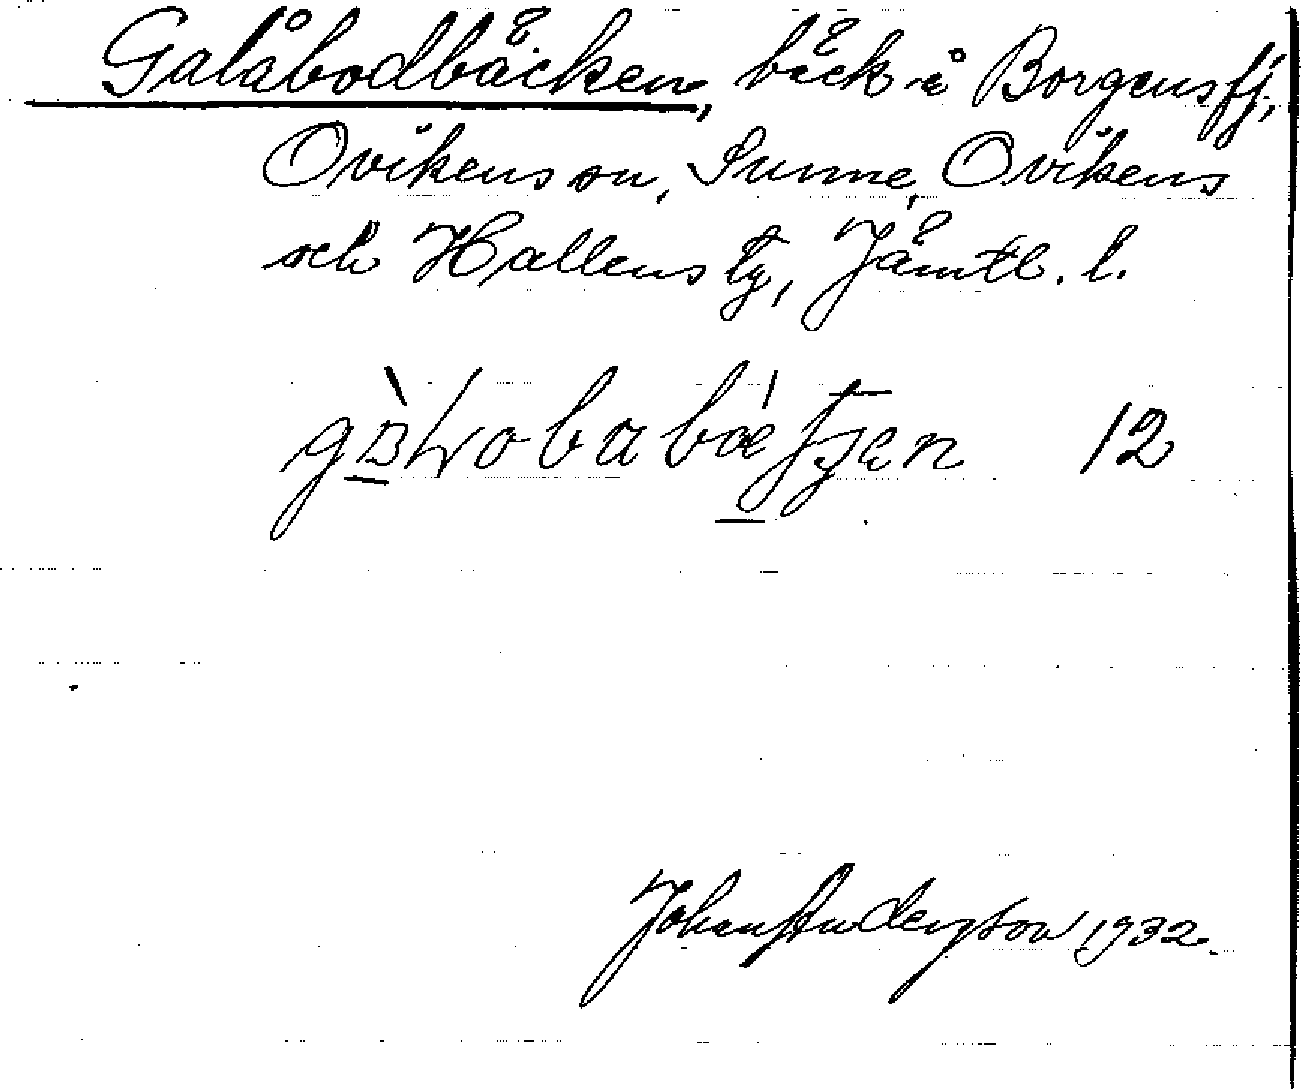 Galåbodbäcken, bäck i Borgens fj,
Ovikens sn, Sunne, Ovikens
och Hallens tg, Jämtl. l.
12
Johan Anderson 1932.